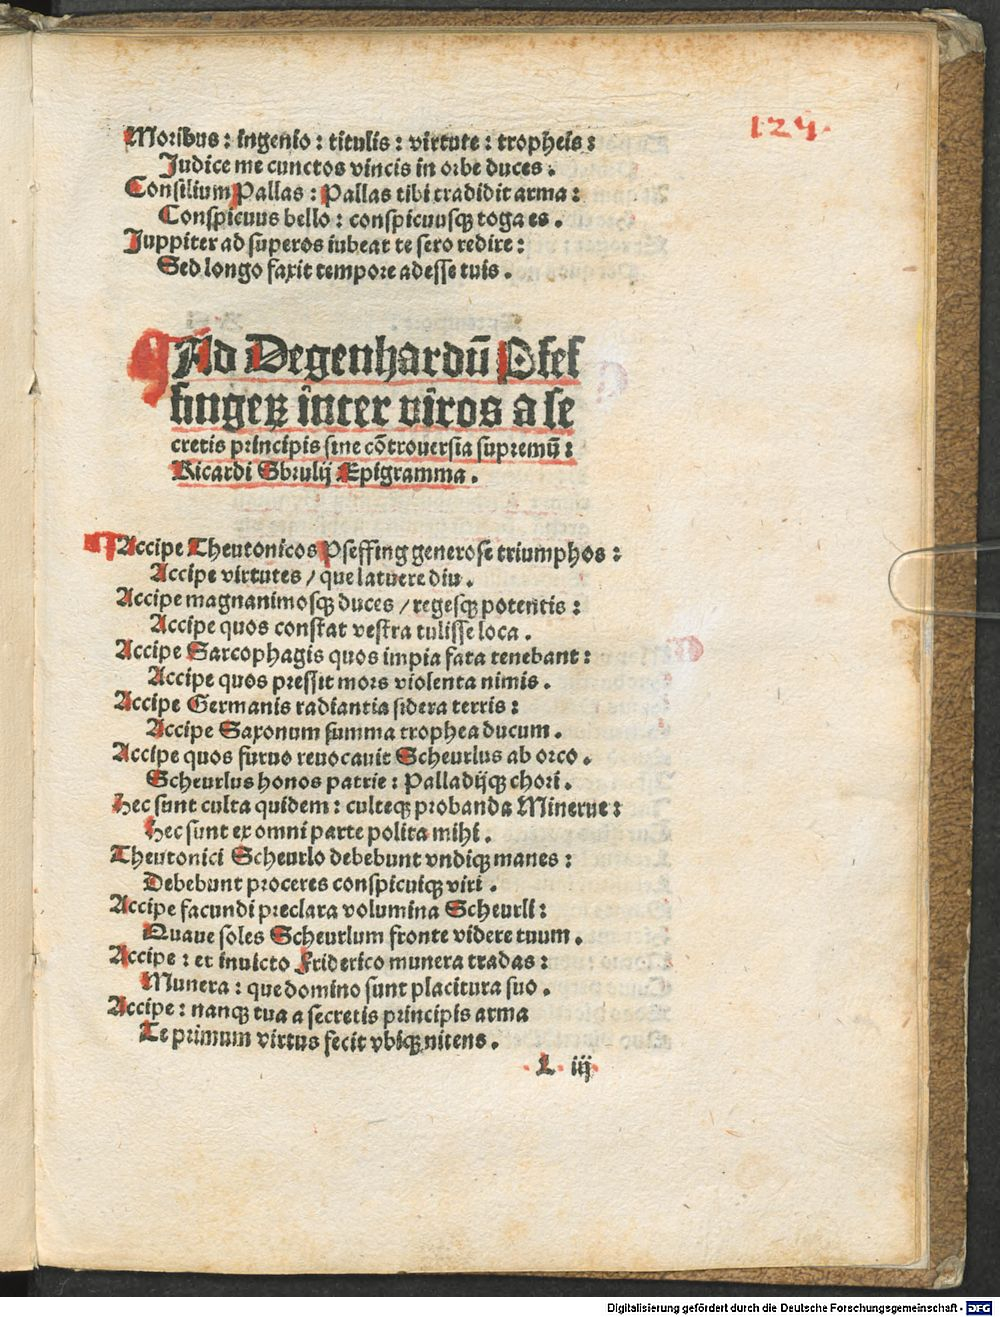 124.
Moribus : ingenio : titulis : virtute : tropheis :
Judice me cunctos vincis in orbe duces .
Consilium Pallas : Pallas tibi tradidit arma :
Conspicuus bello : conspicuusqꝫ toga es .
Juppiter ad superos iubeat te sero redire :
Sed longo faxit tempore adesse tuis .
¶ Ad Degenhardū Psef
fingeꝝ inter viros a se
cretis principis sine cōtrouersia supremū :
Ricardi Sbrulij Epigramma .
¶ Accipe Theutonicos Pseffing generose triumphos :
Accipe virtutes / que latuere diu .
Accipe magnanimosqꝫ duces / regesqꝫ potentis :
Accipe quos constat vestra tulisse loca .
Accipe Sarcophagis quos impia fata tenebant :
Accipe quos pressit mors violenta nimis .
Accipe Germanis radiantia sidera terris :
Accipe Saxonum summa trophea ducum .
Accipe quos furuo reuocauit Scheurlus ab orco .
Scheurlus honos patrie : Palladijqꝫ chori .
Hec sunt culta quidem : culteqꝫ probanda Minerue :
Hec sunt ex omni parte polita mihi .
Theutonici Scheurlo debebunt vndiqꝫ manes :
Debebunt proceres conspicuiqꝫ viri .
Accipe facundi preclara volumina Scheurli :
Quaue soles Scheurlum fronte videre tuum .
Accipe : et inuicto Friderico munera tradas :
Munera : que domino sunt placitura suo .
Accipe : nanqꝫ tua a secretis principis arma
Te primum virtus fecit vbiqꝫ nitens .
L iij
Digitalisierung gefördert durch die Deutsche Forschungsgemeinschaft - DFG